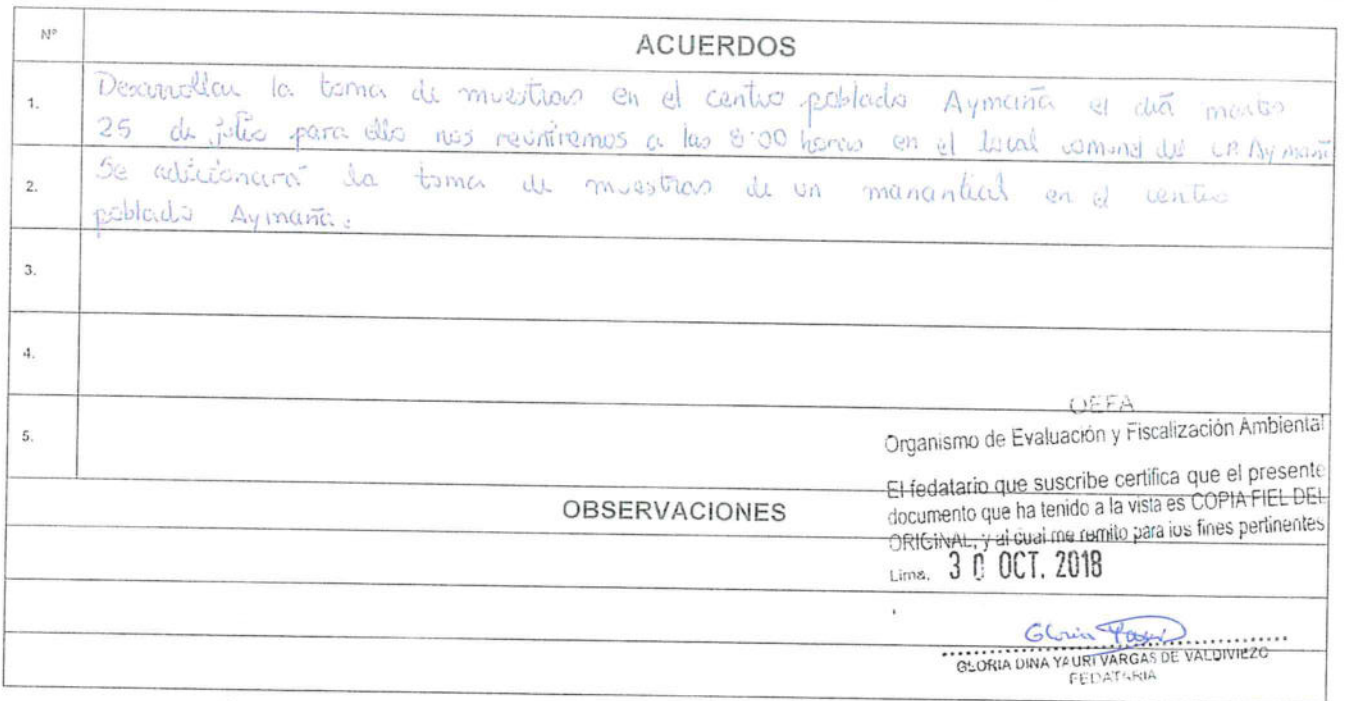 N° ACUERDOS
1. Desarrollar la toma de muestras en el centro poblado Aymaña el día martes
25 de julio para ello nos reuniremos a las 8:00 horas en el local comunal del C.P. Aymaña
2. Se adicionará la toma de muestras de un manantial en el centro
poblado Aymaña.
3.
4.
5.
OEFA
Organismo de Evaluación y Fiscalización Ambiental
El fedatario que suscribe certifica que el presente
documento que ha tenido a la vista es COPIA FIEL DEL
ORIGINAL, y al cual me remito para los fines pertinentes
Lima, 30 OCT. 2018
OBSERVACIONES
Gloria Yauri
GLORIA DINA YAURI VARGAS DE VALDIVIEZO
FEDATARIA